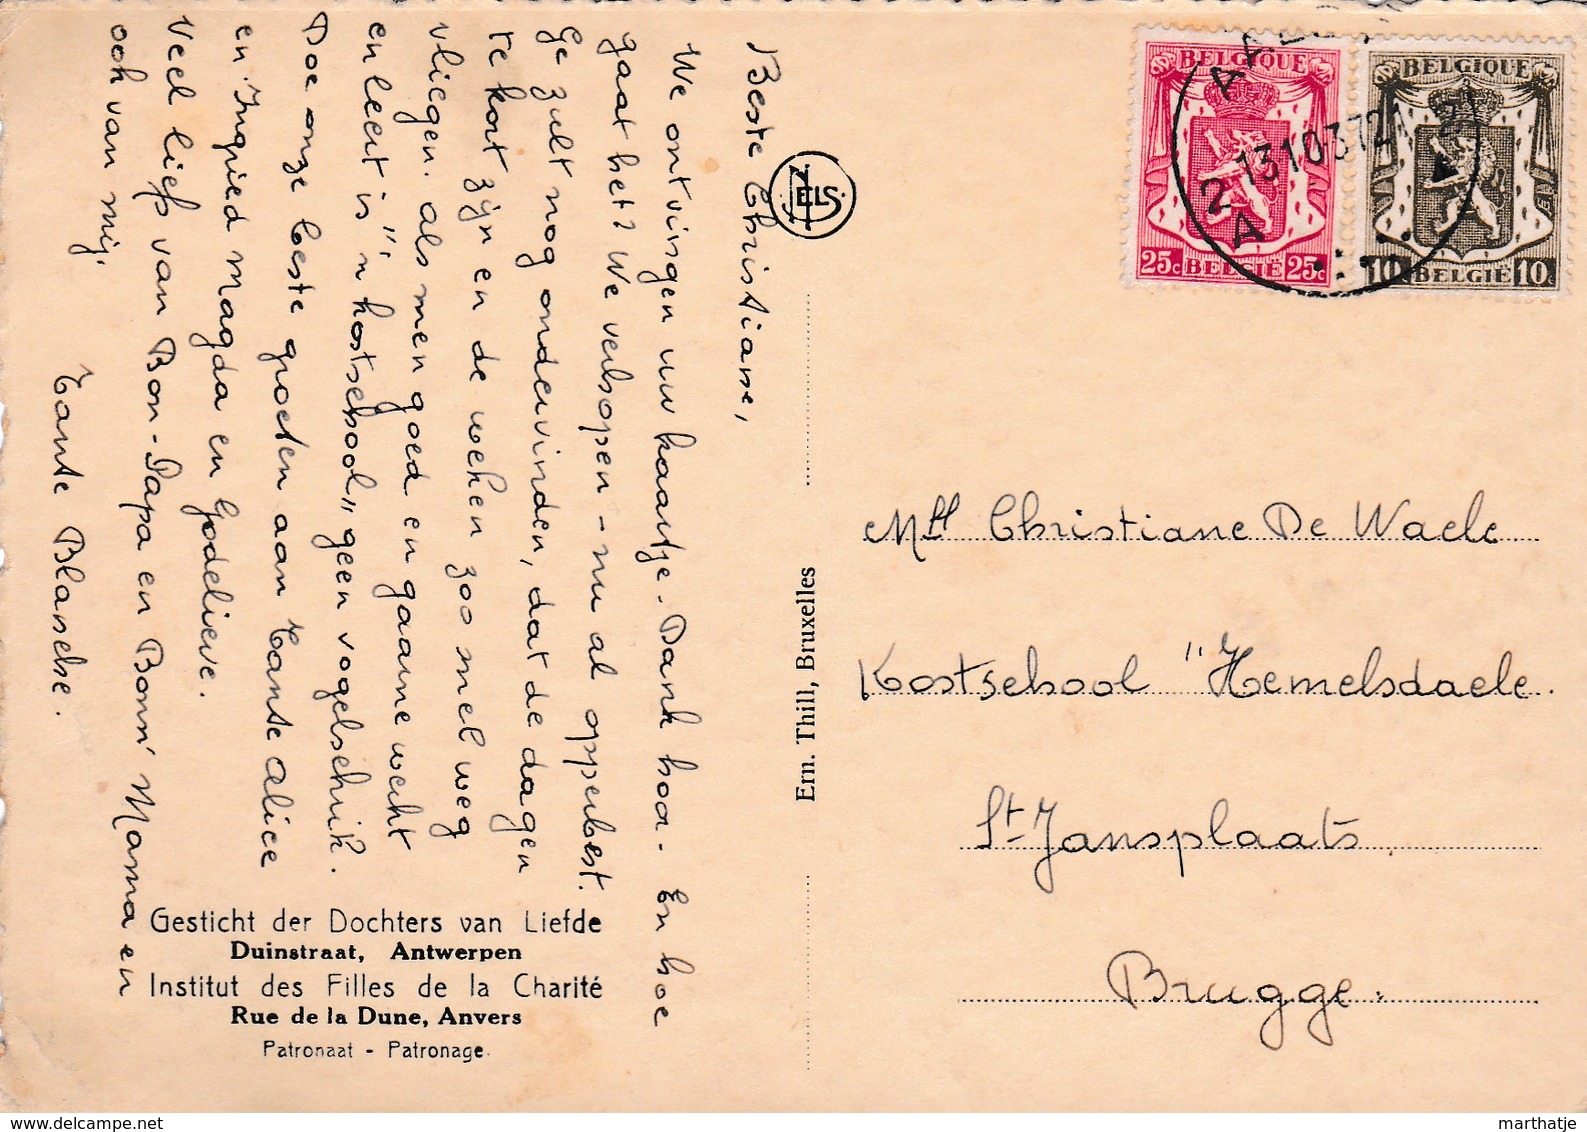 Beste Christiane,
We ontvingen uw kaartje. Dank hoor. En hoe
gaat het? We verhopen - nu al opperbest.
Ge zult nog ondervinden, dat de dagen
te kort zijn en de weken zoo snel weg
vliegen. als men goed en gaarne werkt
en leert is "n kostschool" geen vogelschrik.
Doe onze beste groeten aan tante Alice
en Ingried magda en Godelieve.
Veel liefs van Bon-Papa en Bonn' Mama en
ook van mij.
Tante Blanche.
Gesticht der Dochters van Liefde
Duinstraat, Antwerpen
Institut des Filles de la Charité
Rue de la Dune, Anvers
Patronaat - Patronage.
NELS.
Ern. Thill, Bruxelles
BELGIQUE
25c BELGIË 25c
BELGIQUE
10c BELGIË 10c
2A 2A
131037 21
Mlle Christiane De Waele
Kostschool "Hemelsdaele.
St Jansplaats.
Brugge.
marthatje